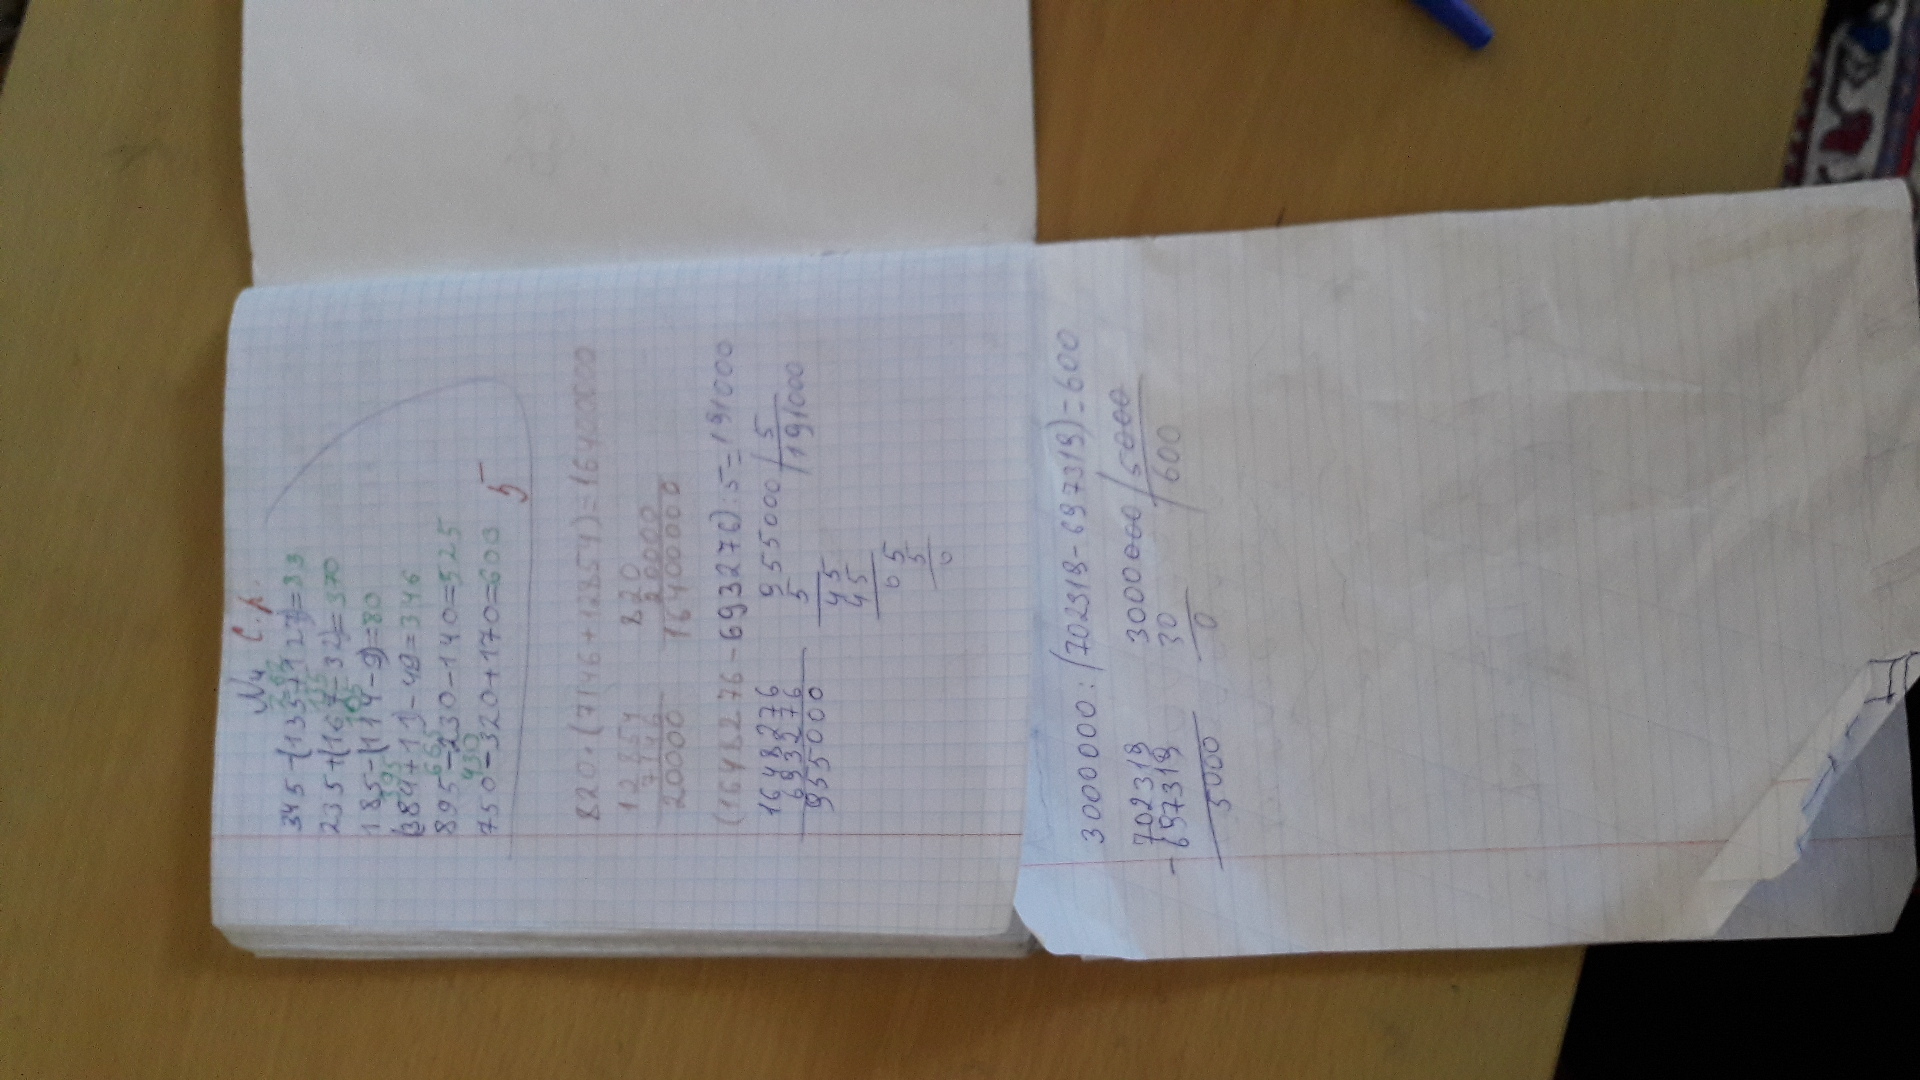 N4 С.р.
345-(135+127)=33
262
235+(167-32)=370
135
185-(114-9)=80
105
(384+11)-49=346
395
895-230-140=525
665
750-320+170=600
430
5
820·(7146+12854)=16400000
12854
7146
20000
820
20000
16400000
(1648276-693276):5=191000
1648276
693276
955000
955000 5
5 191000
45
45
05
5
0
3000000:(702319-697319)=600
702319
-697319
5000
3000000 5000
30 600
0